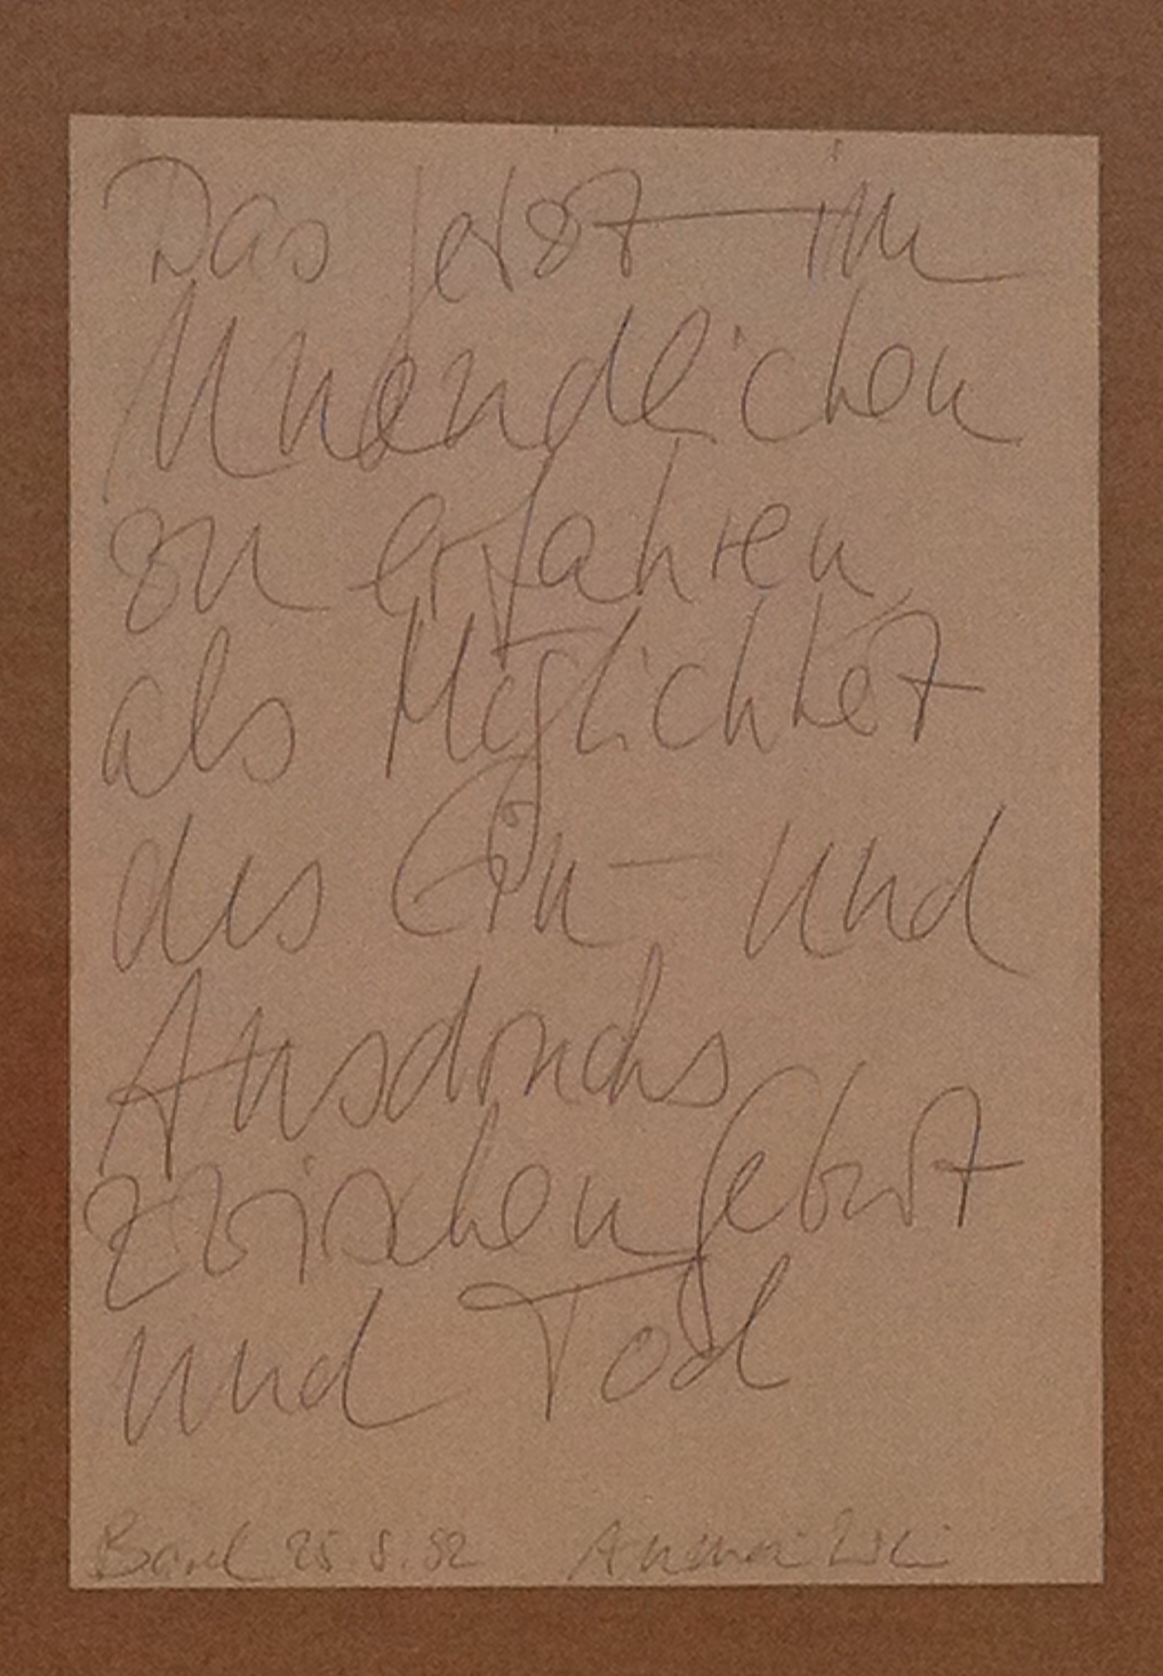 Das Jetzt im
Unendlichen
zu erfahren,
als Möglichkeit
des Ein- und
Ausdrucks
zwischen Geburt
und Tod
25.5.82